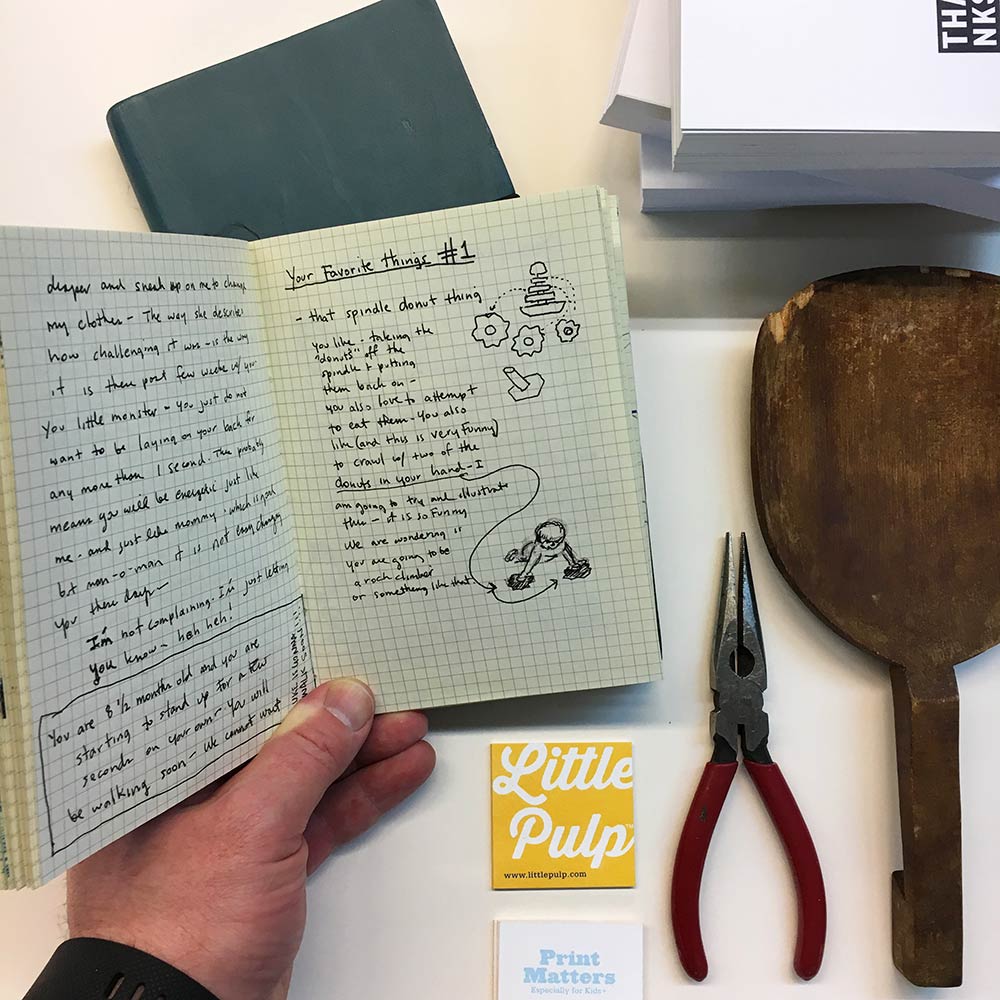 diaper and sneak up on me to change
my clothes - The way she describes
how challenging it was - is the way
it is these past few weeks w/ you
you little monster - you just do not
want to be laying on your back for
any more than 1 second. This probably
means you will be energetic just like
me. and just like mommy. which is good
but man-o-man it is not easy changing
you these days -
I'm not complaining. I'm just letting
you know - heh heh!
You are 8 1/2 months old and you are
starting to stand up for a few
seconds on your own - You will
be walking soon - We cannot wait
WALK SOON!!!
Your Favorite things #1
- that spindle donut thing
you like - taking the
"donuts" off the
spindle + putting
them back on -
you also love to attempt
to eat them - you also
like (and this is very funny)
to crawl w/ two of the
donuts in your hand - I
am going to try and illustrate
this - it is so funny
We are wondering if
you are going to be
a rock climber
or something like that
THA
NKS
Little
Pulp
www.littlepulp.com
Print
Matters
Especially for Kids+